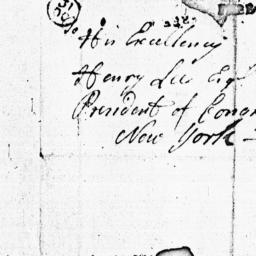 His Excellency
Henry Lee Esqr
President of Congr
New York